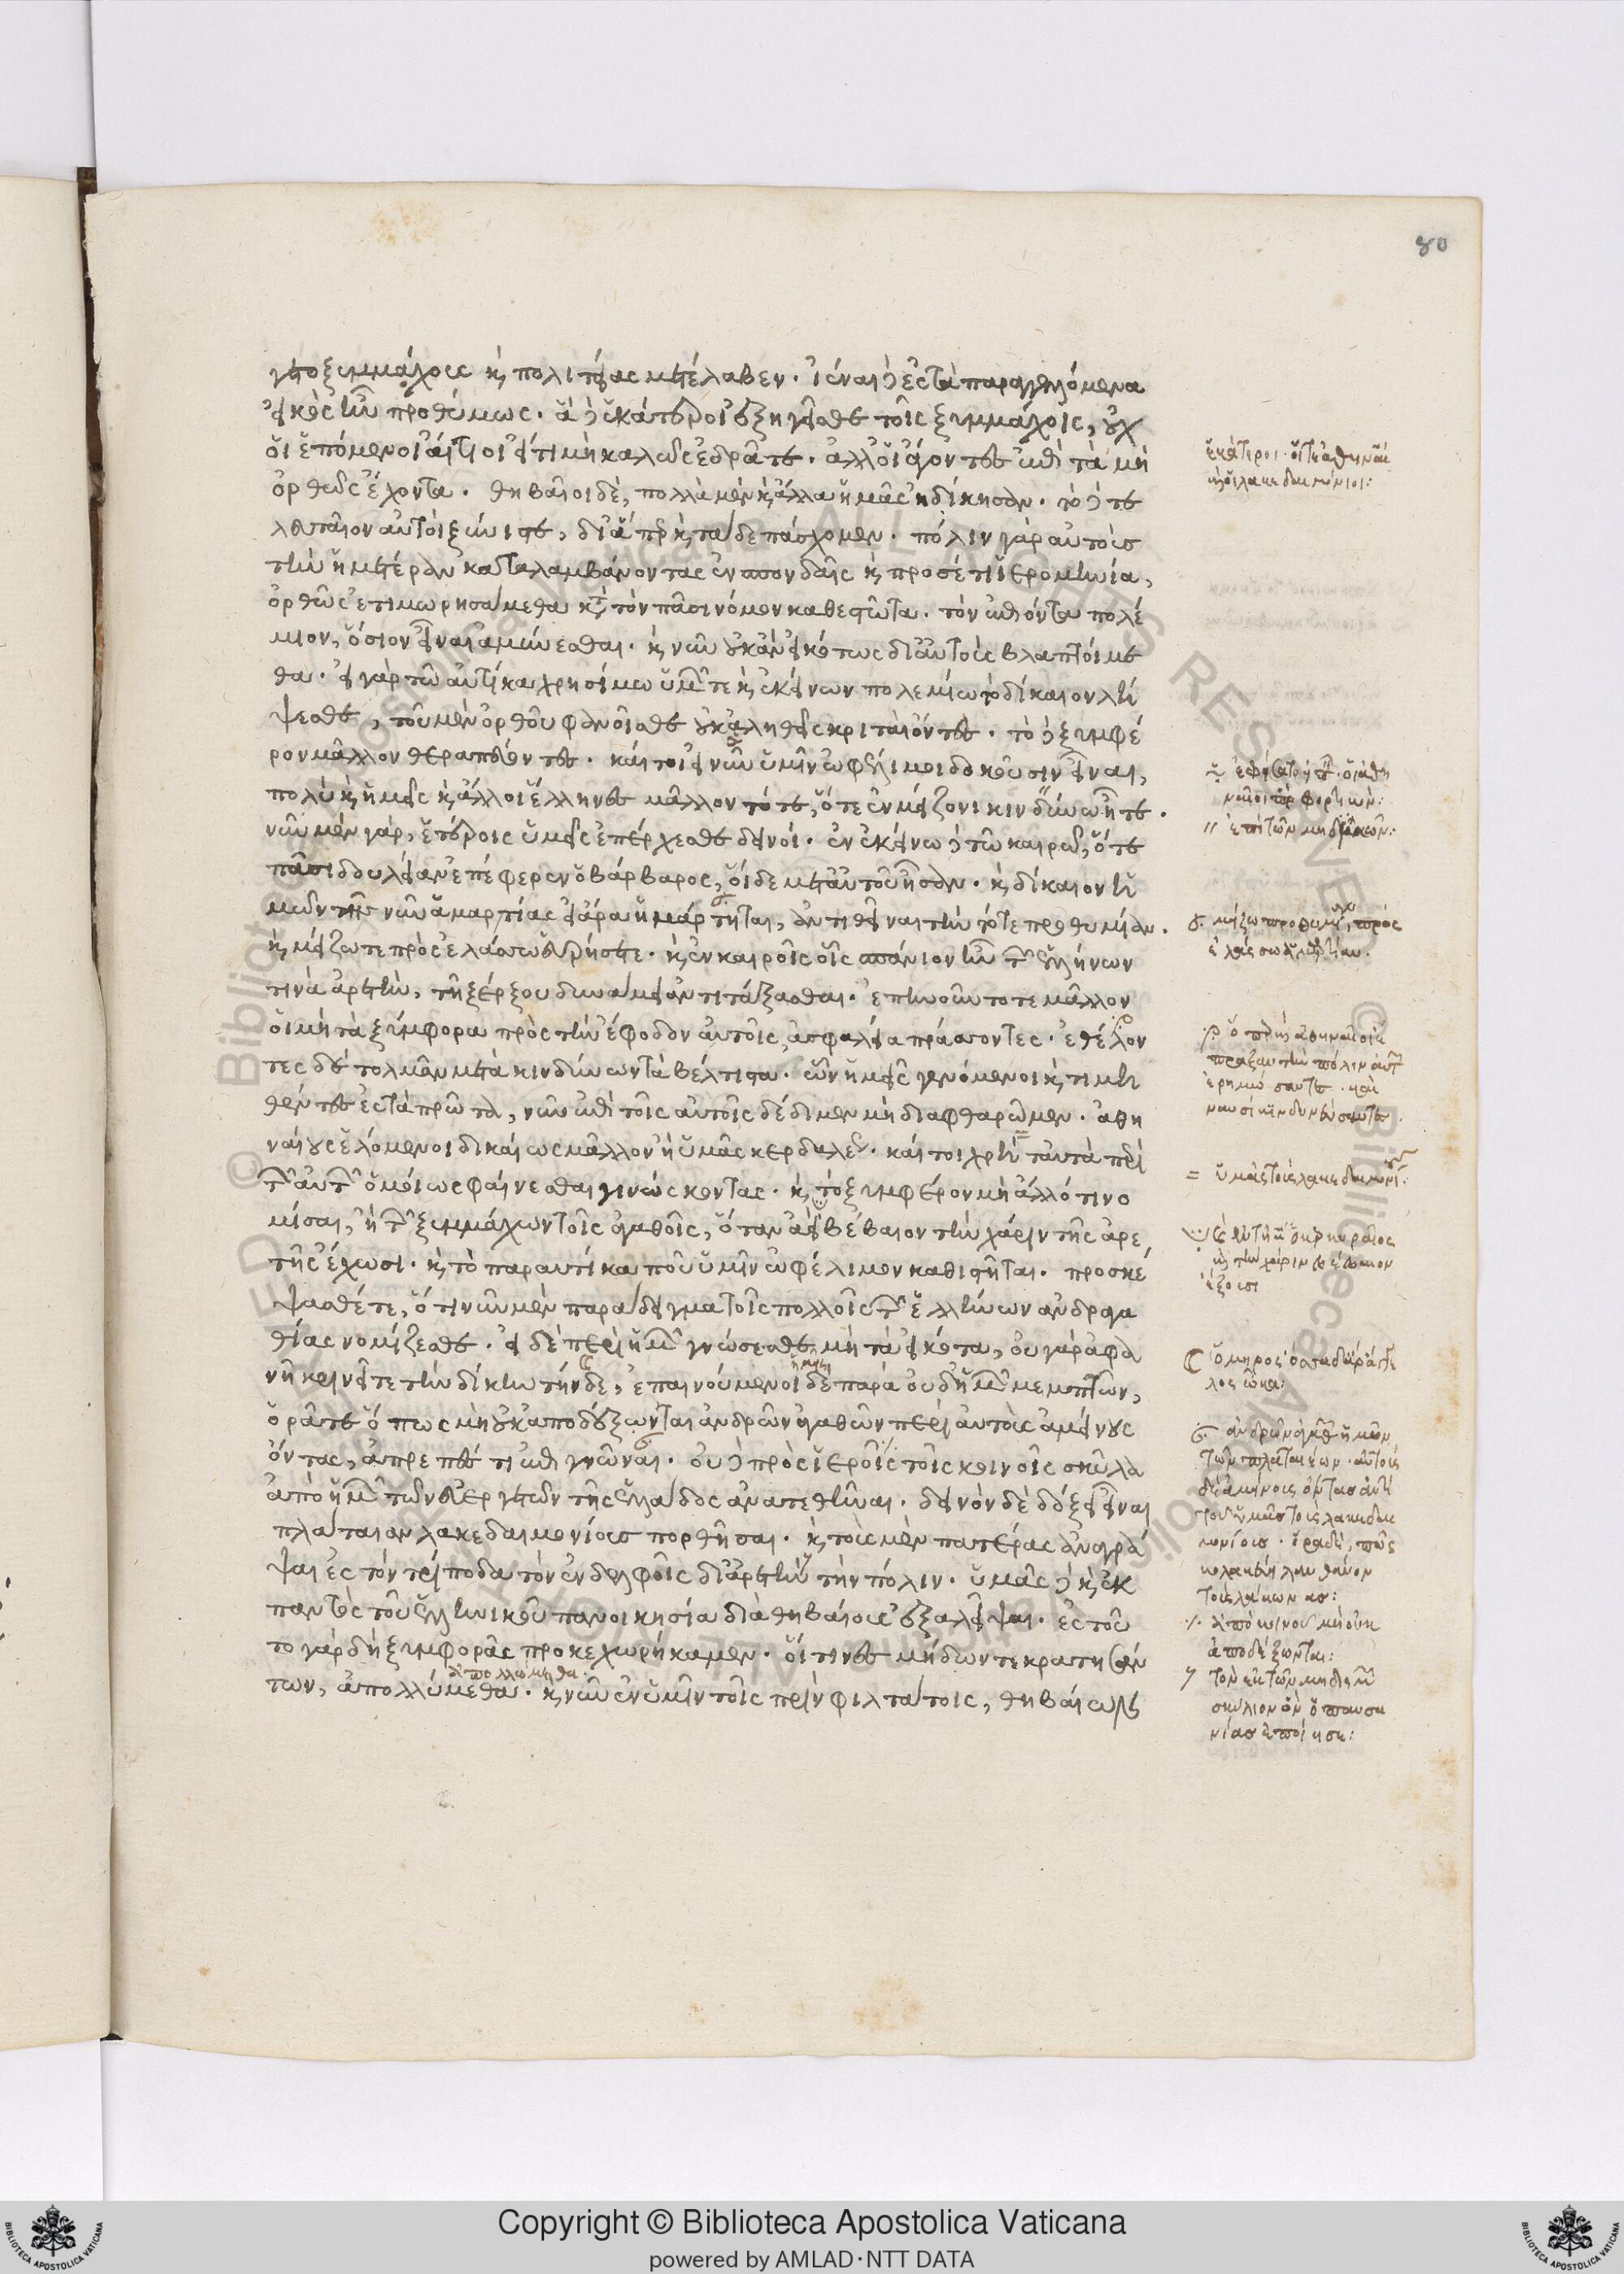 80
γετο ξυμμάχους κ πολιτείας μετέλαβεν. ἰέναι δὲ ἐς τὰ παραγγελόμενα
εἰκὸς ἦν προθύμως. ἃ δὲ ἑκάτεροι ἐξηγεῖσθε τοῖς ξυμμάχοις, οὐχ
οἱ ἑπόμενοι αἴτιοι εἴ τι μὴ καλῶς ἐδρᾶτε. ἀλλ' οἱ ἄγοντες ἐπὶ τὰ μὴ
ὀρθῶς ἔχοντα. θηβαῖοι δὲ, πολλὰ μὲν κ ἄλλα ἡμᾶς ἠδίκησαν. τὸ δὲ τε
λευταῖον αὐτοὶ ξύνιστε, δι' ἅπερ κ τάδε πάσχομεν. πόλιν γὰρ αὐτοὺς
τὴν ἡμετέραν καταλαμβάνοντας ἐν σπονδαῖς κ προσέτι ἱερομηνία,
ὀρθῶς ἐτιμωρησάμεθα κατὰ τὸν πᾶσι νόμον καθεστῶτα. τὸν ἐπιόντα πολέ
μιον, ὅσιον εἶναι ἀμύνεσθαι. κ νῦν οὐκ ἂν εἰκότως δι' αὐτοὺς βλαπτοίμε
θα. εἰ γὰρ τῶ αὐτίκα χρησίμω ὑμῶν τε κ ἐκείνων πολεμίω τὸ δίκαιον λή
ψεσθε, τοῦ μὲν ὀρθοῦ φανεῖσθε οὐκ ἀληθεῖς κριταὶ ὄντες. τὸ δὲ ξυμφέ
ρον μᾶλλον θεραπεύοντες. καίτοι εἰ νῦν ὑμῖν ὠφέλιμοι δοκοῦσιν εἶναι,
πολὺ κ ἡμεῖς κ ἄλλοι ἕλληνες μᾶλλον τότε, ὅτε ἐν μείζονι κινδύνω ἦτε.
νῦν μὲν γὰρ, ἑτέροις ὑμεῖς ἐπέρχεσθε δεινοί. ἐν ἐκείνω δὲ τῶ καιρῶ, ὅτε
πᾶσι δουλείαν ἐπέφερεν ὁ βάρβαρος, οἵδε μετ' αὐτοῦ ἦσαν. κ δίκαιον ἡ
μῶν τῆς νῦν ἁμαρτίας εἰ ἄρα ἡμάρτηται, ἀντιθεῖναι τὴν τότε προθυμίαν.
κ μείζω τε πρὸς ἐλάσσω εὑρήσετε. κ ἐν καιροῖς οἷς σπάνιον ἦν τῶν ἑλλήνων
τινὰ ἀρετὴν, τῇ ξέρξου δυνάμει ἀντιτάξασθαι. ἐπηνοῦντό τε μᾶλλον
οἱ μὴ τὰ ξύμφορα πρὸς τὴν ἔφοδον αὐτοῖς, ἀσφαλεία πράσσοντες. ἐθέλον
τες δὲ τολμᾶν μετὰ κινδύνων τὰ βέλτιστα. ὧν ἡμεῖς γενόμενοι κ τιμη
θέντες ἐς τὰ πρῶτα, νῦν ἐπὶ τοῖς αὐτοῖς δέδιμεν μὴ διαφθαρῶμεν. ἀθη
ναίους ἑλόμενοι δικαίως μᾶλλον ἢ ὑμᾶς κερδαλέως. καίτοι χρὴ ταὐτὰ περὶ
τῶν αὐτῶν ὁμοίως φαίνεσθαι γινώσκοντας. κ τὸ ξυμφέρον μὴ ἄλλό τι νο
μίσαι, ἢ τῶν ξυμμάχων τοῖς ἀγαθοῖς, ὅταν ἀεὶ βέβαιον τὴν χάριν τῆς ἀρε
τῆς ἔχωσι. κ τὸ παραυτίκα που ὑμῖν ὠφέλιμον καθιστῆται. προσκέ
ψασθέ τε, ὅτι νῦν μὲν παράδειγμα τοῖς πολλοῖς τῶν ἑλλήνων ἀνδραγα
θίας νομίζεσθε. εἰ δὲ περὶ ἡμῶν γνώσεσθε μὴ τὰ εἰκότα, οὐ γὰρ ἀφα
νῆ κρινεῖτε τὴν δίκην τήνδε, ἐπαινούμενοι δὲ παρὰ οὐδ' ἡμῶν μεμπτῶν,
ὁρᾶτε ὅπως μὴ οὐκ ἀποδέξωνται ἀνδρῶν ἀγαθῶν περὶ αὐτοὺς ἀμείνους
ὄντας, ἀπρεπές τι ἐπιγνῶναι. οὐδὲ πρὸς ἱεροῖς τοῖς κοινοῖς σκῦλα
ἀπὸ ἡμῶν τῶν εὐεργετῶν τῆς ἑλλάδος ἀνατεθῆναι. δεινὸν δὲ δόξει εἶναι
πλάταιαν λακεδαιμονίους πορθῆσαι. κ τοὺς μὲν πατέρας ἀναγρά
ψαι ἐς τὸν τρίποδα τὸν ἐν δελφοῖς δι' ἀρετὴν τὴν πόλιν. ὑμᾶς δὲ κ ἐκ
παντὸς τοῦ ἑλληνικοῦ πανοικησία διὰ θηβαίους ἐξαλεῖψαι. ἐς τοῦ
το γὰρ δὴ ξυμφορᾶς προκεχωρήκαμεν. οἵτινες μήδων τε κρατησάν
των, ἀπολλύμεθα. κ νῦν ἐν ὑμῖν τοῖς πρὶν φιλτάτοις, θηβαίων
ἑκάτεροι. οἵ τε ἀθηναῖοι
κ οἱ λακεδαιμόνιοι:
ναῖοι
ἐπὶ τῶν μηδικῶν:
μείζω προθυμίαν, πρὸς
ἐλάσσω ἁμαρτίαν.
πραξαν τὴν πόλιν αὐτῶν
ἐρημώσαντες. καὶ
ναυσὶ κινδυνεύσαντες.
ὑμᾶς τοὺς λακεδαιμονίους.
κ τὴν χάριν βέβαιον
ἔξουσι
ὅμηρος
ἀνδρῶν ἀγαθῶν ἡμῶν
τῶν πλαταιέων. αὐτοὺς
δὲ ἀμείνους ὄντας ἀντὶ
τοῦ ὑμᾶς τοὺς λακεδαι
μονίους.
τοὺς λάκωνας:
ἀπὸ κοινοῦ μὴ οὐκ
ἀποδέξωνται:
τὸν ἐκ τῶν μηδικῶν
σκύλων ὃν ὁ παυσα
νίας ἐποίησε:
Copyright © Biblioteca Apostolica Vaticana
powered by AMLAD·NTT DATA